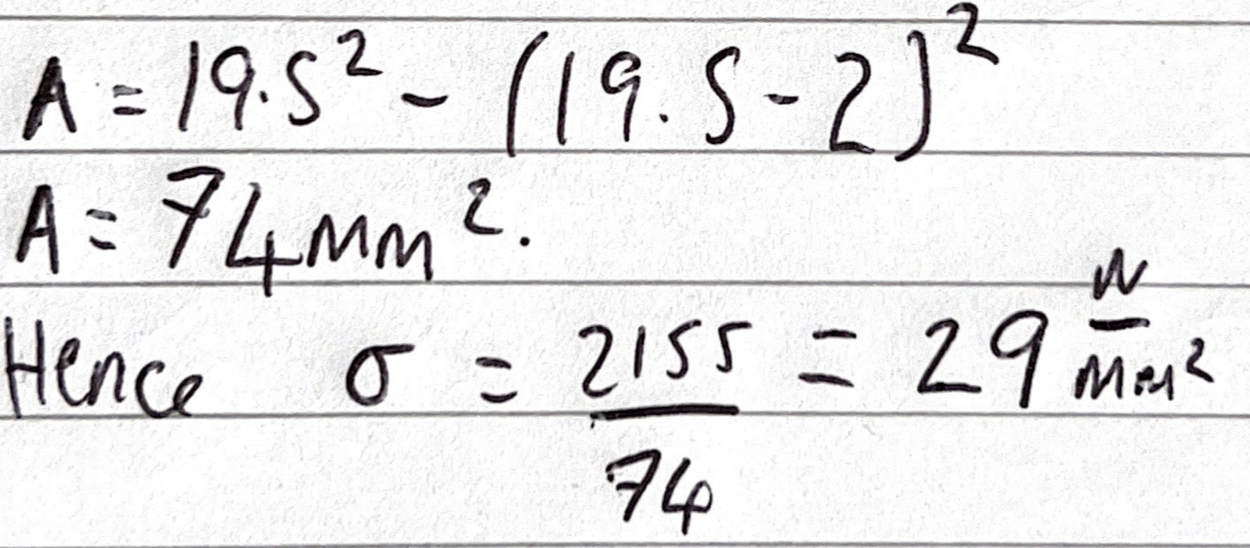 A = 19.5² - (19.5-2)²
A = 74mm².
Hence σ = 2155/74 = 29 N/mm²